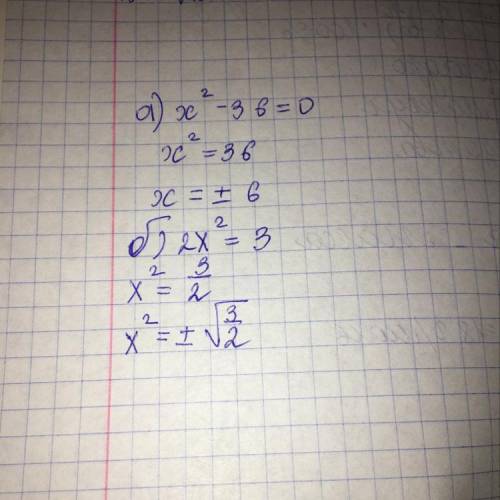 а) x² - 36 = 0
x² = 36
x = ± 6
б) 2x² = 3
x² = 3/2
x² = ± √(3/2)